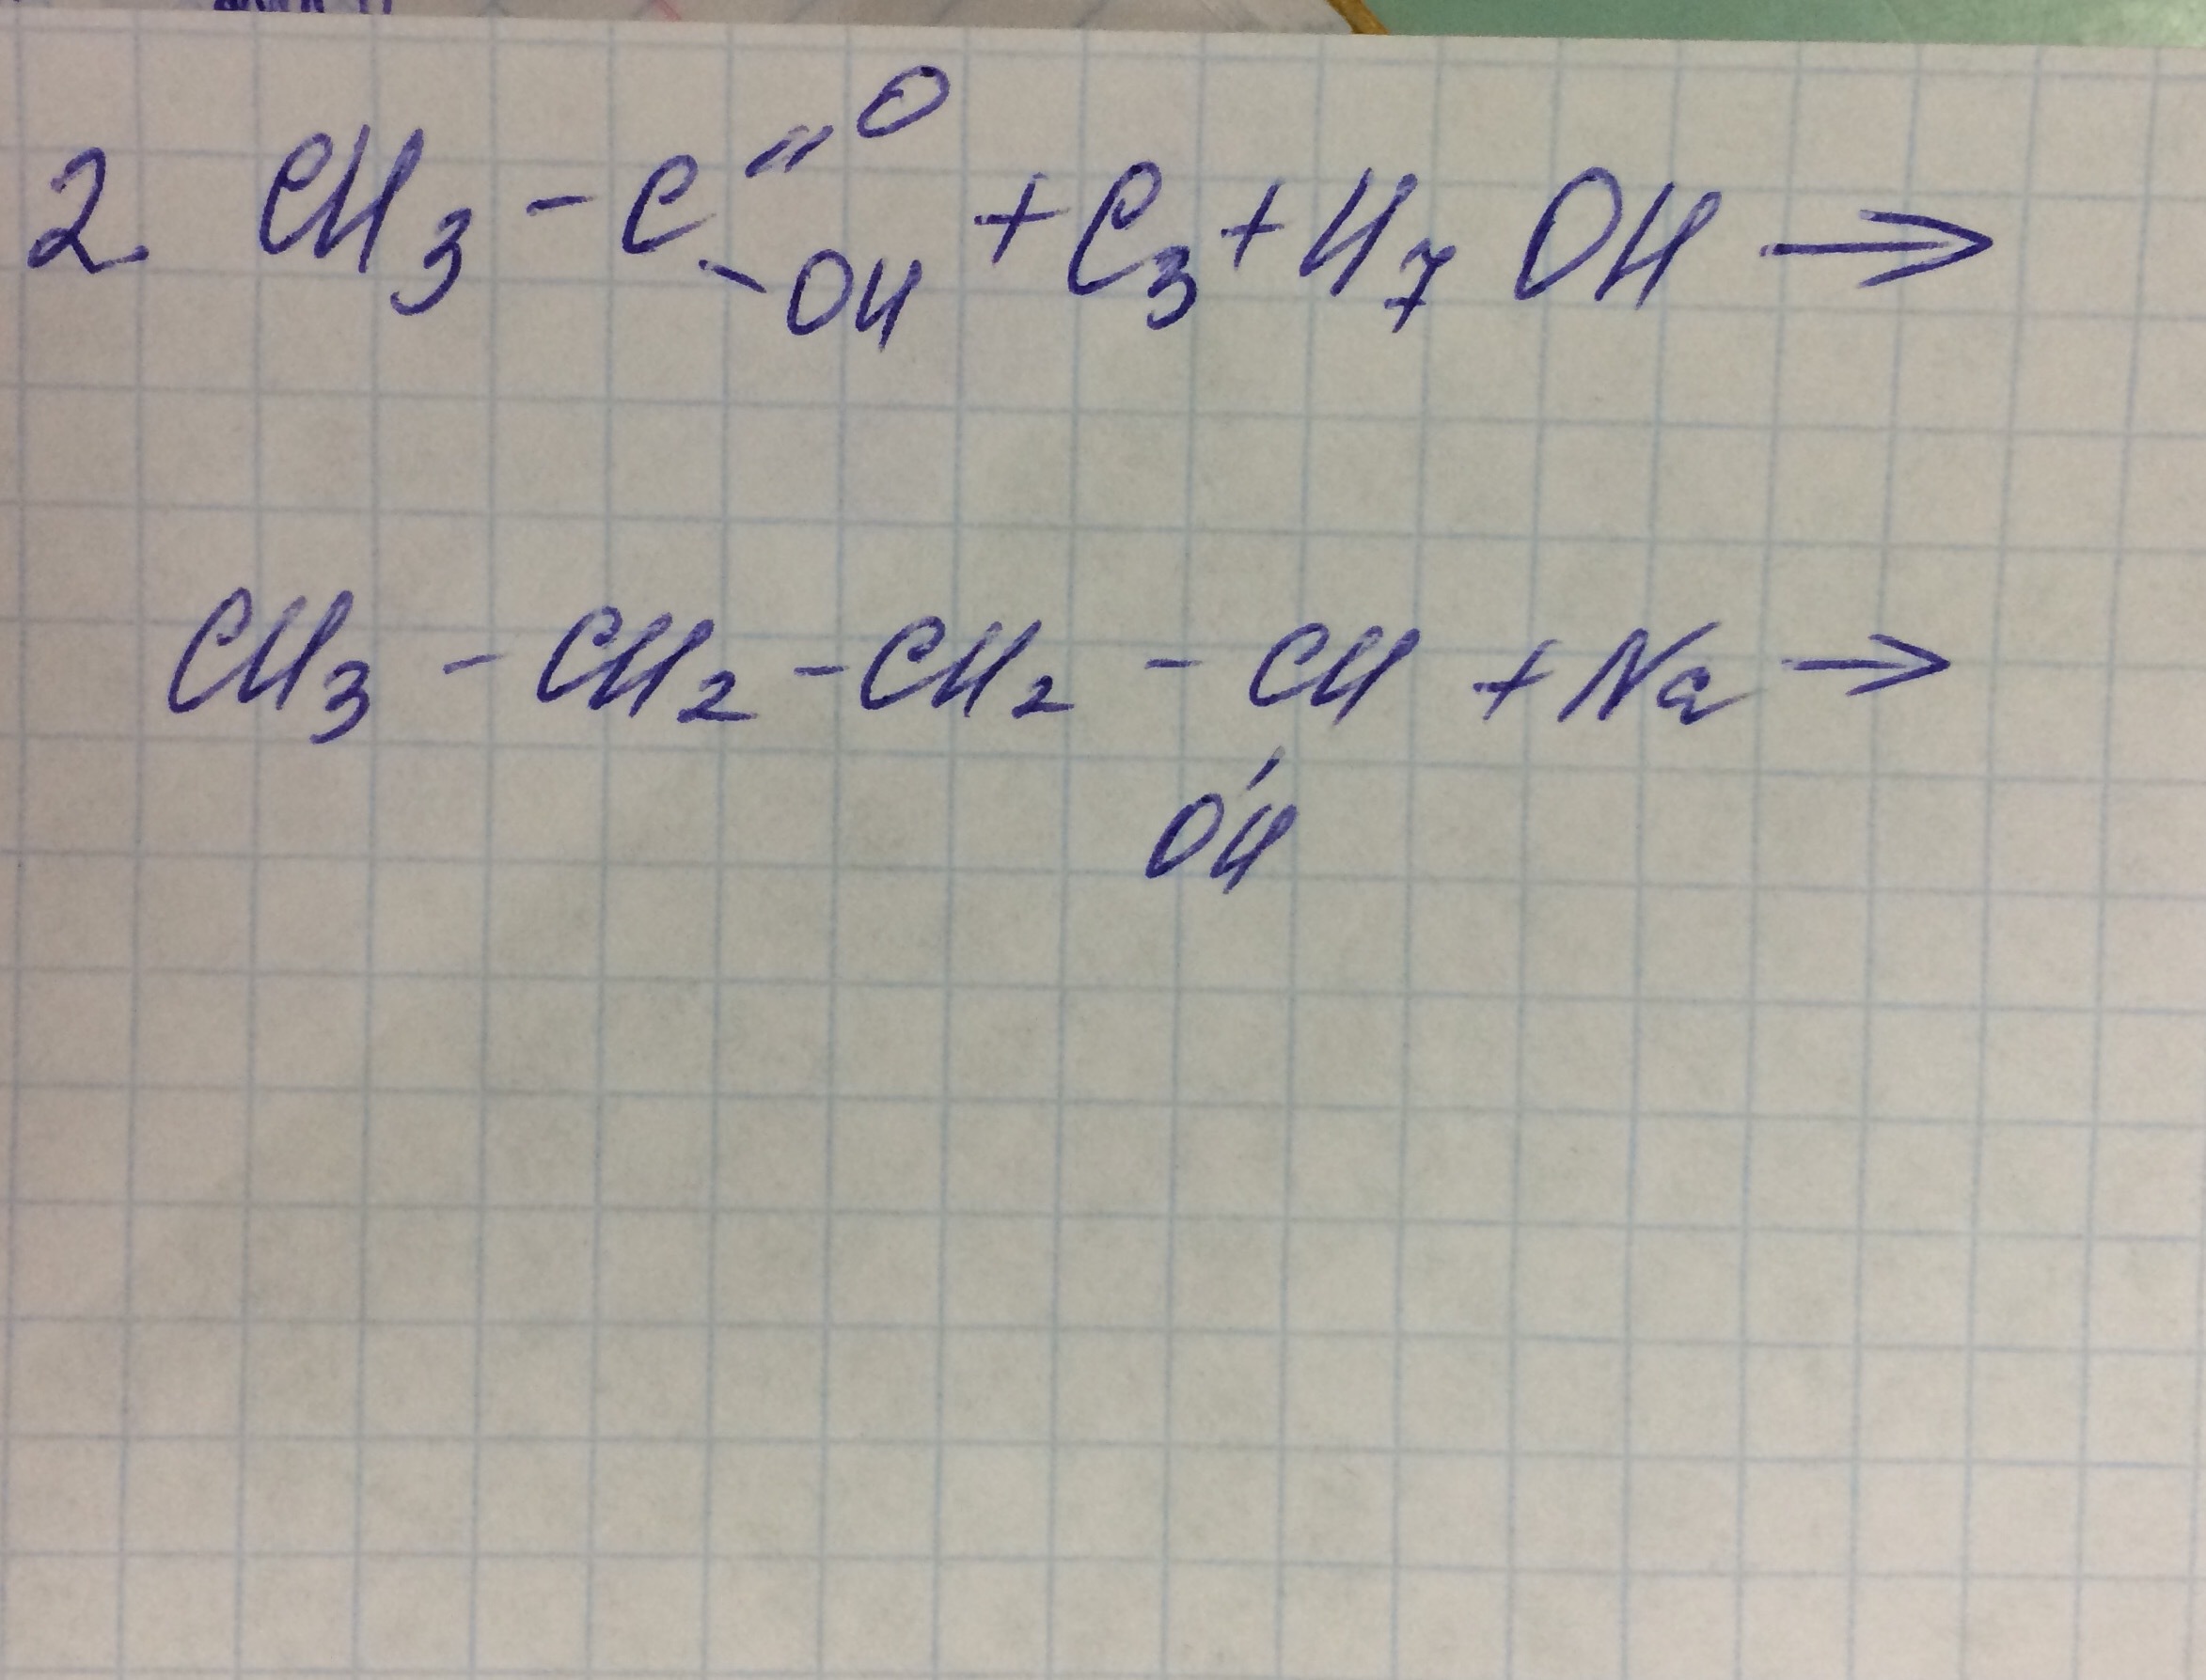 2. CH3 - C =O -OH + C3 + H7 OH →
CH3 - CH2 - CH2 - CH + Na →
OH